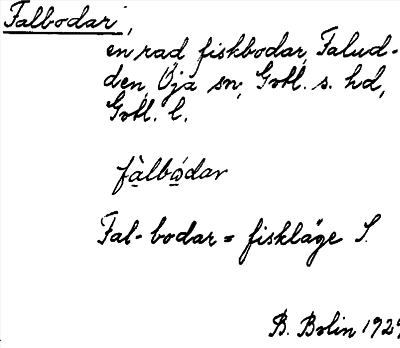 Falbodar,
en rad fiskbodar, Falud-
den, Öja sn, Gotl. s. hd,
Gotl. l.
fàlbódar
Fal-bodar = fiskläge S.
B. Bolin 1929